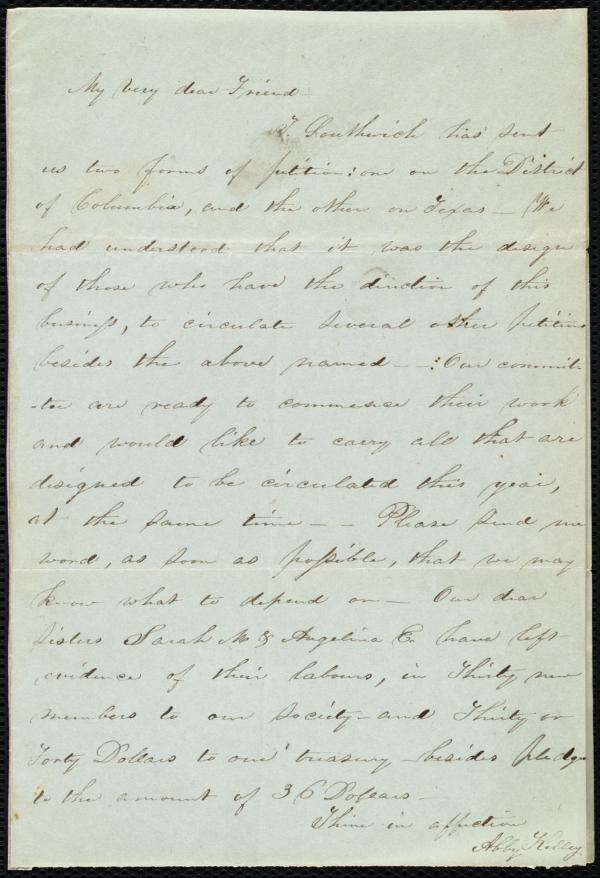 My very dear Friend
T. Southwick has sent
us two forms of petition: one on the District
of Columbia, and the other on Texas — We
had understood that it was the design
of those who have the direction of this
business, to circulate several other petitions
besides the above named — —: Our commit-
-tee are ready to commence their work
and would like to carry all that are
designed to be circulated this year,
at the same time — — Please send me
word, as soon as possible, that we may
know what to depend on — Our dear
Sisters Sarah M & Angelina E. have left
evidence of their labours, in Thirty new
members to our society — and Thirty or
Forty Dollars to our treasury — besides pledges
to the amount of 36 Dollars —
Thine in affection
Abby Kelley.